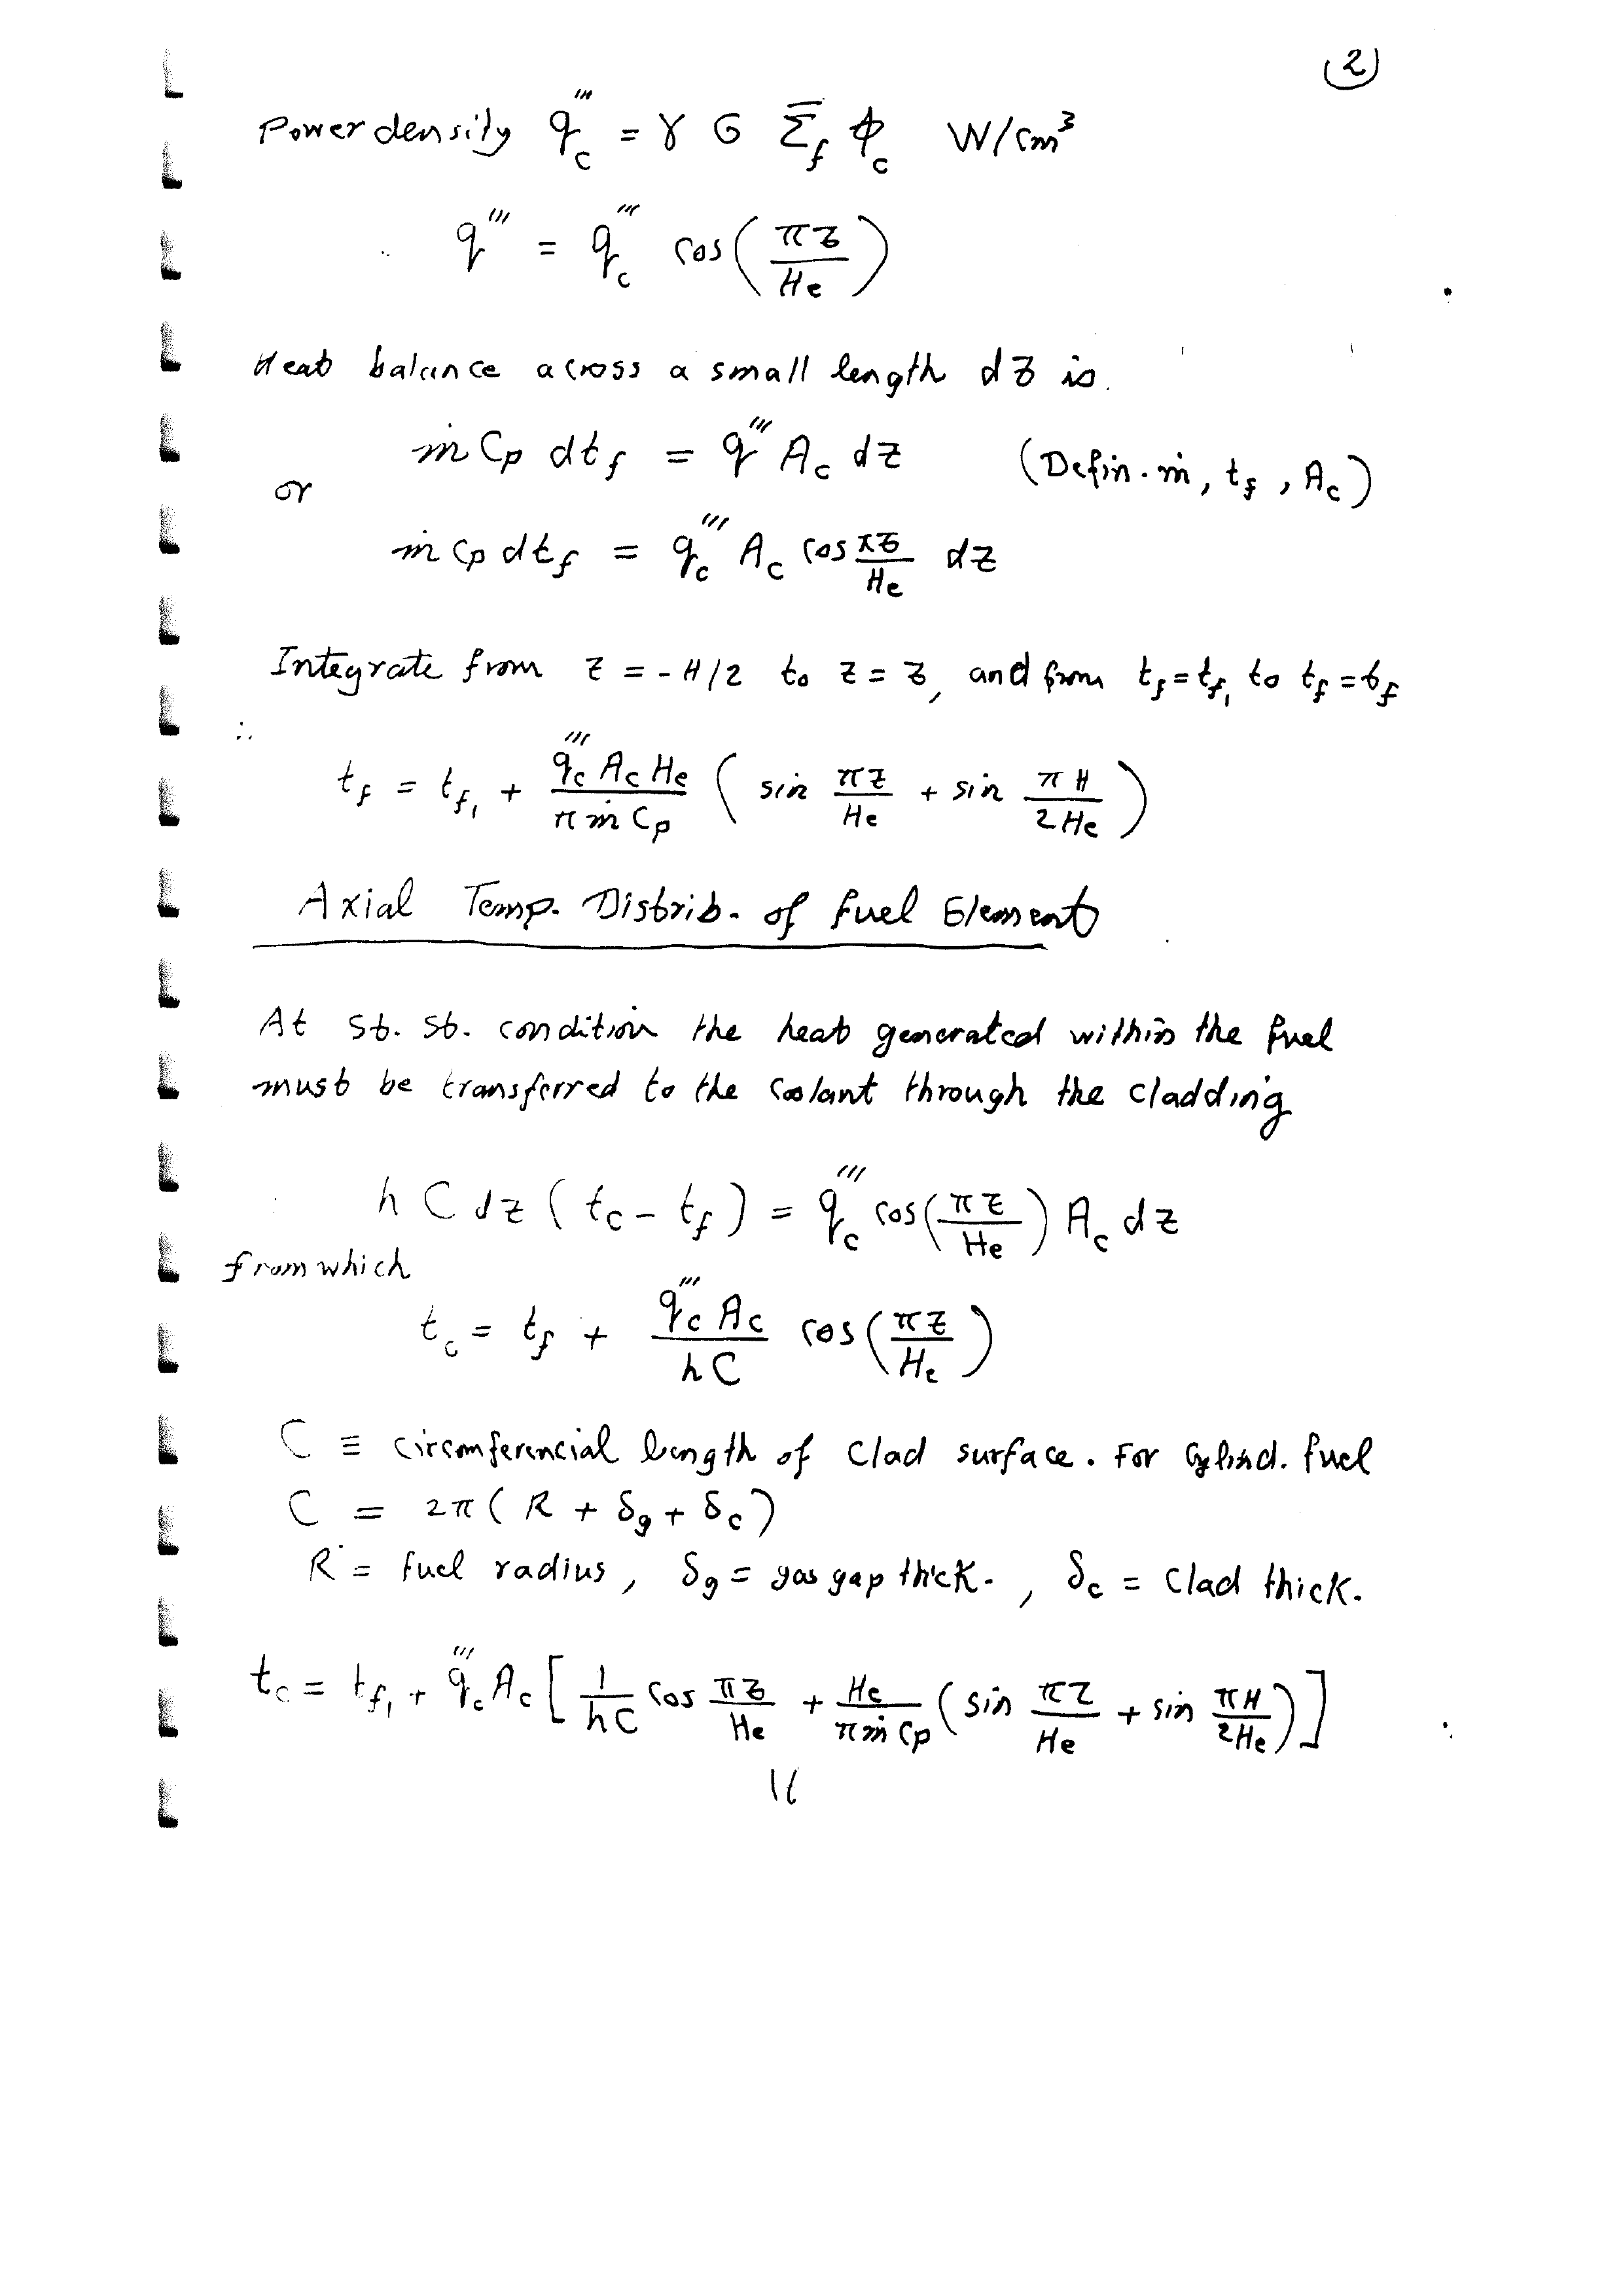 (2)
Power density q_c''' = γ G Σ̄_f φ_c W/cm³
q''' = q_c''' cos(πz/He)
Heat balance across a small length dz is.
ṁ Cp dt_f = q''' A_c dz (Defin. ṁ, t_f, A_c)
or
ṁ Cp dt_f = q_c''' A_c cos πz/He dz
Integrate from z = -H/2 to z = z, and from t_f = t_f1 to t_f = t_f
∴
t_f = t_f1 + q_c''' A_c He / π ṁ Cp ( sin πz/He + sin πH/2He )
Axial Temp. Distrib. of fuel Element
At St. St. condition the heat generated within the fuel
must be transferred to the coolant through the cladding
h C dz ( t_c - t_f ) = q_c''' cos(πz/He) A_c dz
from which
t_c = t_f + q_c''' A_c / h C cos(πz/He)
C ≡ circomferencial length of Clad surface. For Cylind. fuel
C = 2π ( R + δ_g + δ_c )
R = fuel radius, δ_g = gas gap thick., δ_c = Clad thick.
t_c = t_f1 + q_c''' A_c [ 1/hC cos πz/He + He/π ṁ Cp ( sin πz/He + sin πH/2He ) ]
16